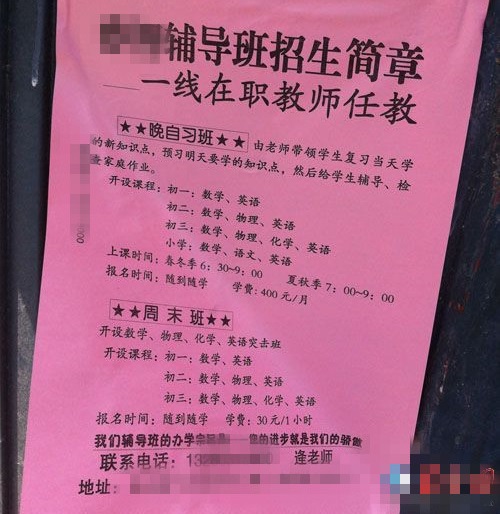 辅导班招生简章
——一线在职教师任教
★★晚自习班★★ 由老师带领学生复习当天学
的新知识点，预习明天要学的知识点，然后给学生辅导、检
查家庭作业。
开设课程：初一：数学、英语
初二：数学、物理、英语
初三：数学、物理、化学、英语
小学：数学、语文、英语
上课时间：春冬季6：30~9：00 夏秋季7：00~9：00
报名时间：随到随学 学费：400元/月
★★周末班★★
开设数学、物理、化学、英语突击班
开设课程：初一：数学、英语
初二：数学、物理、英语
初三：数学、物理、化学、英语
报名时间：随到随学 学费：30元/1小时
我们辅导班的办学宗 您的进步就是我们的骄傲
联系电话：13 逄老师
地址：